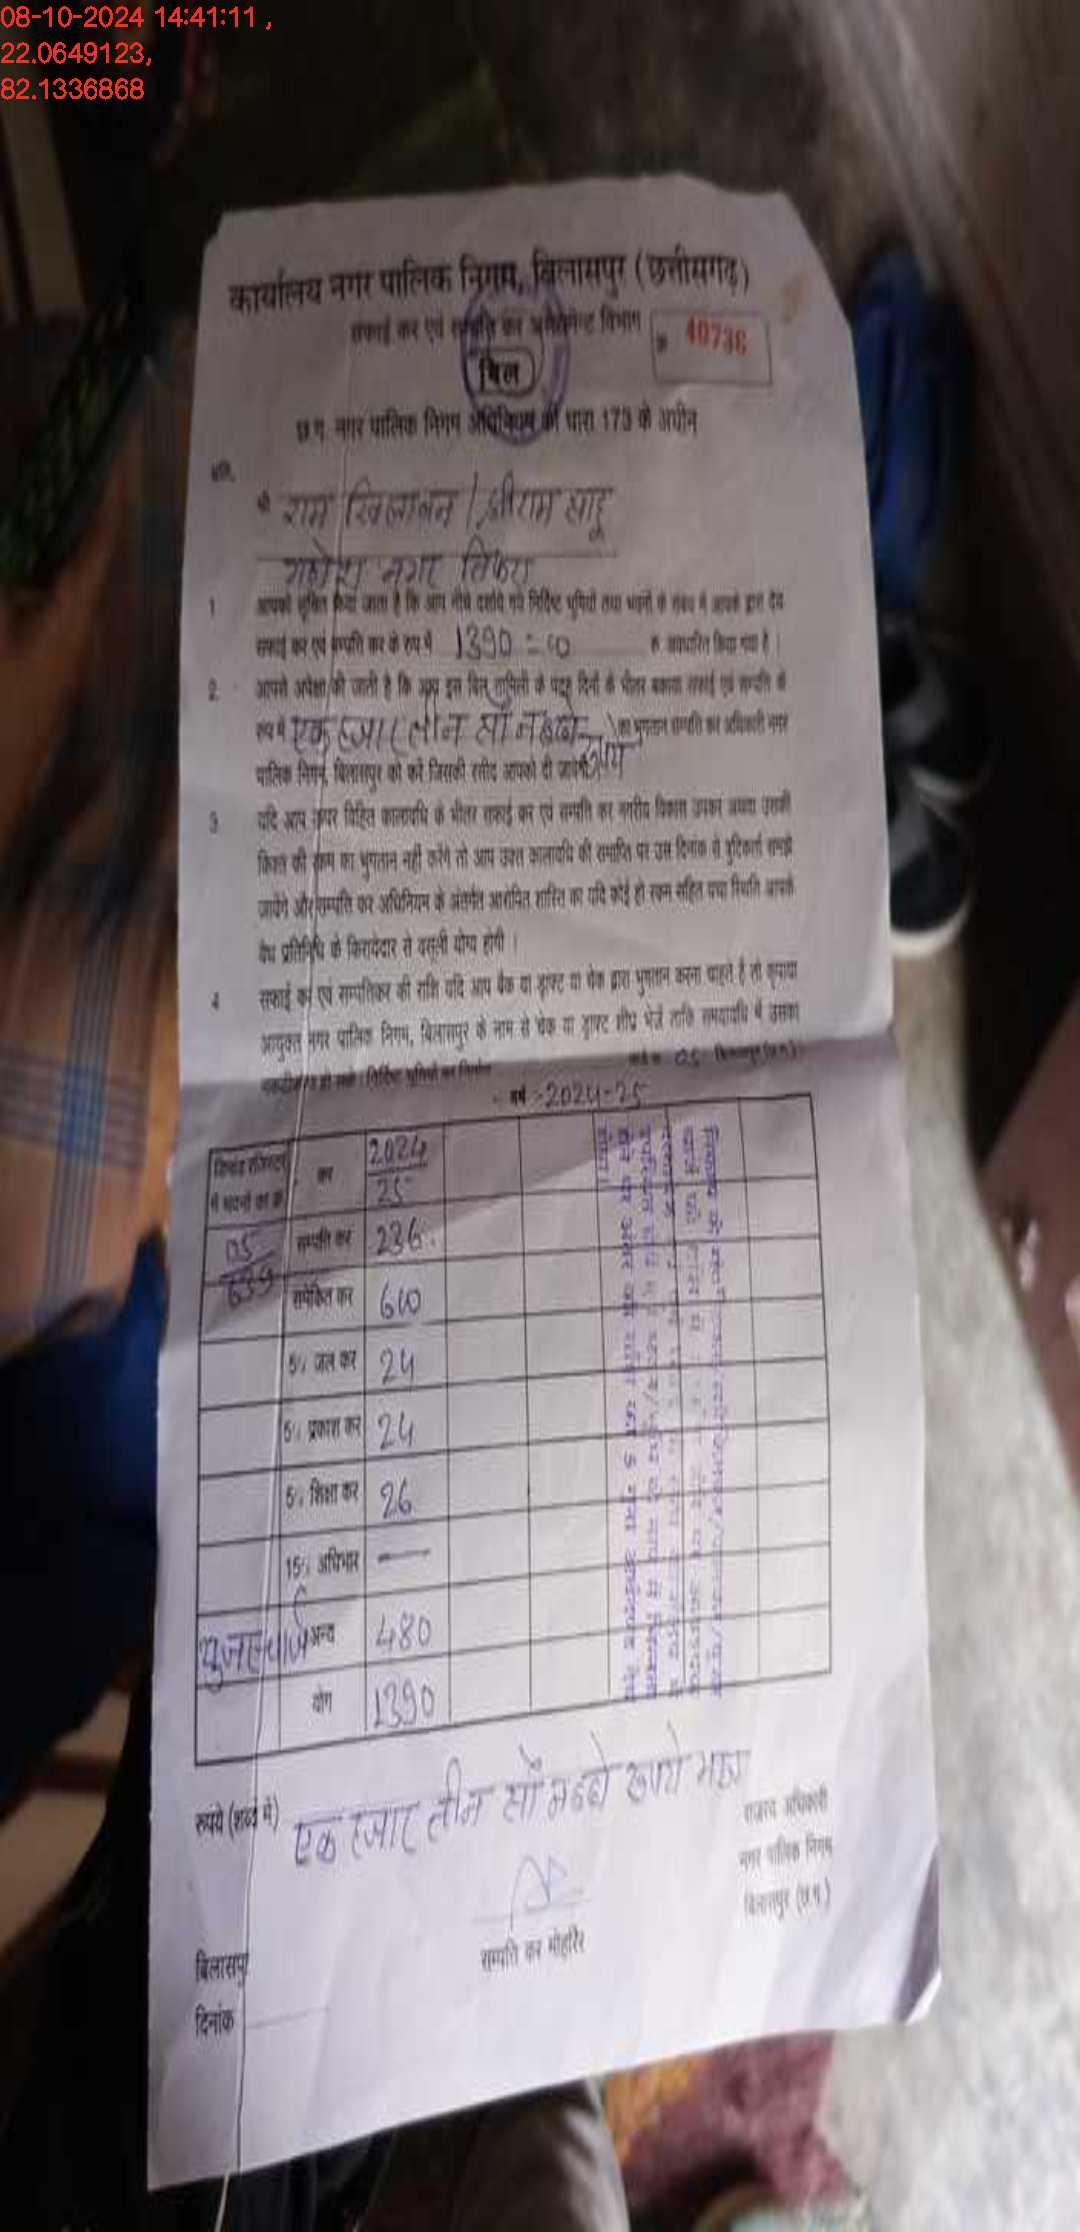 08-10-2024 14:41:11 ,
22.0649123,
82.1336868
कार्यालय नगर पालिक निगम, बिलासपुर (छत्तीसगढ़)
सफाई कर एवं सम्पत्ति कर विभाग
40736
बिल
छ.ग. नगर पालिक निगम अधिनियम की धारा 173 के अधीन
प्रति,
श्री राम खिलावन / श्रीराम साहू
गणेश नगर तिफरा
1 आपको सूचित किया जाता है कि आप नीचे दर्शाये गये निर्दिष्ट भूमियों तथा भवनों के संबंध में आपके द्वारा देय
सफाई कर एवं सम्पत्ति कर के रूप में 1390=00 रु. अवधारित किया गया है।
2. आपसे अपेक्षा की जाती है कि आप इस बिल तामिली के पंद्रह दिनों के भीतर बकाया सफाई एवं सम्पत्ति के
रूप में एक हजार तीन सौ नब्बे रूपये का भुगतान सम्पत्ति कर अधिकारी नगर
पालिक निगम, बिलासपुर को करें जिसकी रसीद आपको दी जावेगी
3 यदि आप ऊपर विहित कालावधि के भीतर सफाई कर एवं सम्पत्ति कर नगरीय विकास उपकर अथवा उसकी
किश्त की रकम का भुगतान नहीं करेंगे तो आप उक्त कालावधि की समाप्ति पर उस दिनांक से त्रुटिकर्ता समझे
जायेंगे और सम्पत्ति कर अधिनियम के अंतर्गत आरोपित शास्ति का यदि कोई हो रकम सहित यथा स्थिति आपके
वैध प्रतिनिधि के किरायेदार से वसूली योग्य होगी।
4 सफाई कर एवं सम्पत्तिकर की राशि यदि आप बैंक या ड्राफ्ट या चेक द्वारा भुगतान करना चाहते है तो कृपया
आयुक्त नगर पालिक निगम, बिलासपुर के नाम से चेक या ड्राफ्ट शीघ्र भेजें ताकि समयावधि में उसका
हो सके। निर्दिष्ट भूमियों का 05 बिलासपुर (छ.ग.)
वर्ष :- 2024-25
डिमांड रजिस्टर में भवनों का क्र. कर 2024/25
05/639 सम्पत्ति कर 236
समेकित कर 600
5% जल कर 24
5% प्रकाश कर 24
5% शिक्षा कर 26
15% अधिभार —
यूजर चार्ज अन्य 480
योग 1390
रूपये (शब्द में) एक हजार तीन सौ नब्बे रूपये मात्र
राजस्व अधिकारी
नगर पालिक निगम
बिलासपुर (छ.ग.)
सम्पत्ति कर मोहर्रिर
बिलासपुर
दिनांक